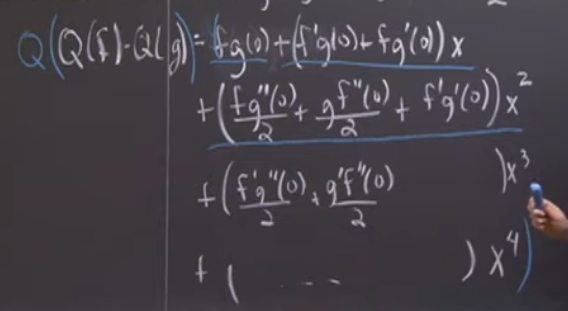 Q(Q(f)·Q(g)) = (fg(0) + (f'g(0) + fg'(0)) x
+ (fg''(0)/2 + gf''(0)/2 + f'g'(0)) x²
+ (f'g''(0)/2 + g'f''(0)/2 ) x³
+ ( ... ) x⁴)